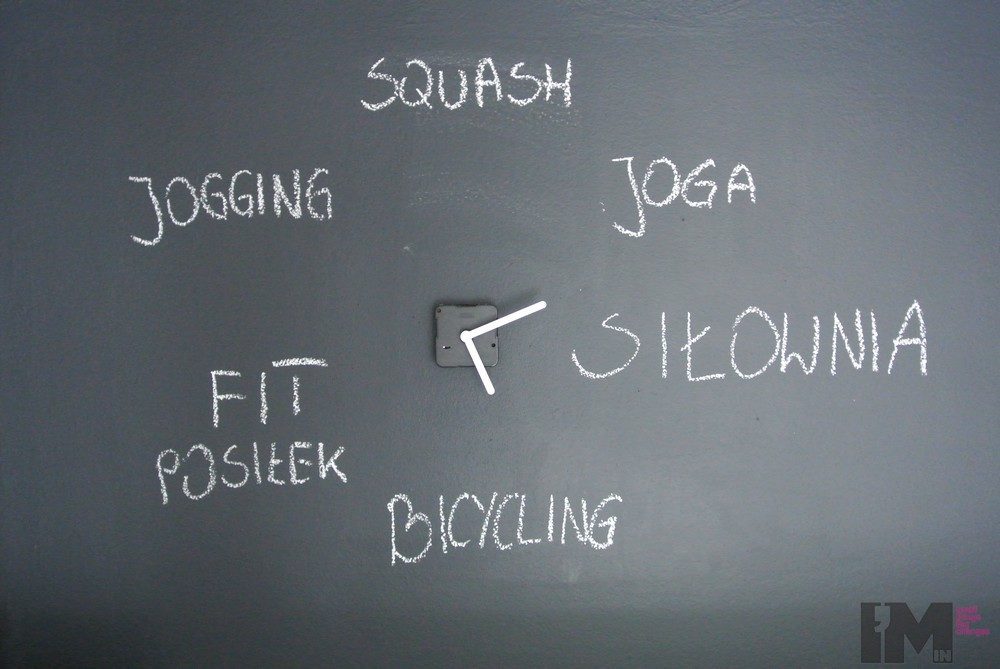 SQUASH
JOGGING
JOGA
SIŁOWNIA
FIT
POSIŁEK
BICYCLING
I'M
IN